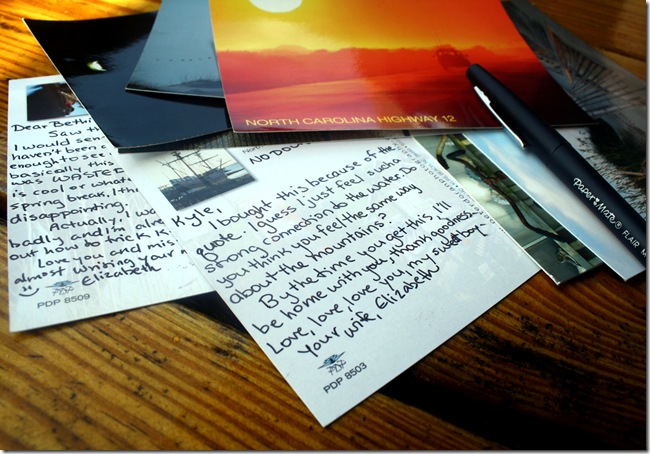 NORTH CAROLINA HIGHWAY 12
PaperMate® FLAIR
Dear Bethi
Saw th
I would sen
haven't been
enough to see
basically this
was UPSTE
is cool or what
spring break! tho
disappointing.
Actually, I wo
badly and I'm alre
out how to trick K
Love you and mis
almost writing your
Elizabeth
PDP 8509
Kyle,
I bought this because of the
quote. I guess I just feel such a
strong connection to the water. Do
you think you feel the same way
about the mountains?
By the time you get this, I'll
be home with you, thank goodness.
Love, love, love you, my sweet boy.
your wife, Elizabeth
PDP 8503